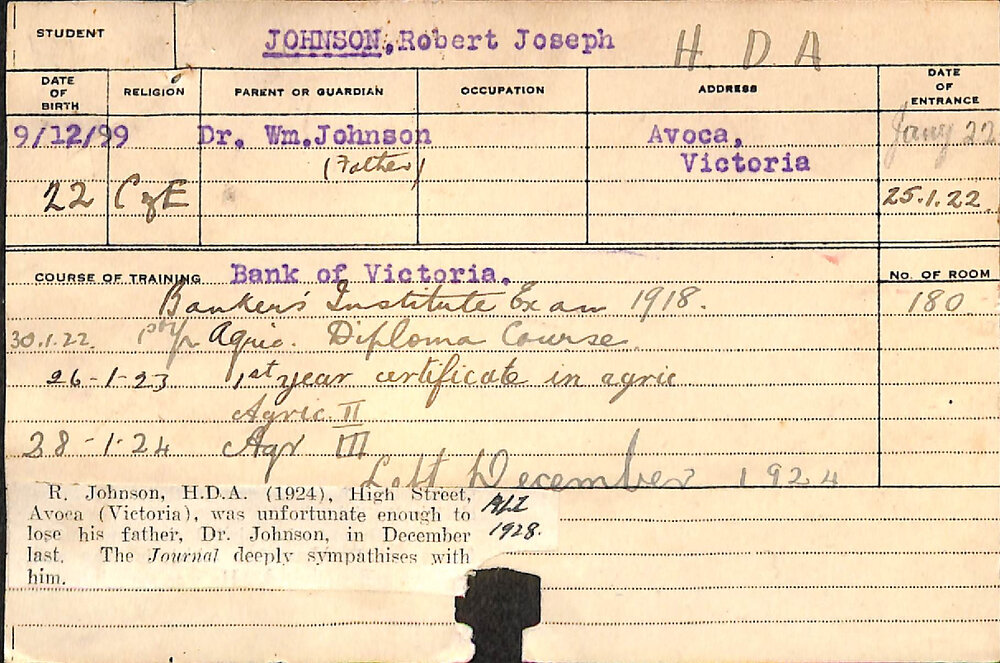 STUDENT JOHNSON, Robert Joseph H. D A
DATE OF BIRTH RELIGION PARENT OR GUARDIAN OCCUPATION ADDRESS DATE OF ENTRANCE
9/12/99 Dr. Wm. Johnson Avoca, Jany 22
(Father) Victoria
22 C of E 25.1.22.
COURSE OF TRAINING Bank of Victoria. No. OF ROOM
Banker's Institute Exam 1918. 180
30.1.22. 1st yr Agric. Diploma Course
26-1-23 1st year certificate in agric
Agric II
28-1-24 Agr III
Left December 1924
R. Johnson, H.D.A. (1924), High Street,
Avoca (Victoria), was unfortunate enough to
lose his father, Dr. Johnson, in December
last. The Journal deeply sympathises with
him.
1928.